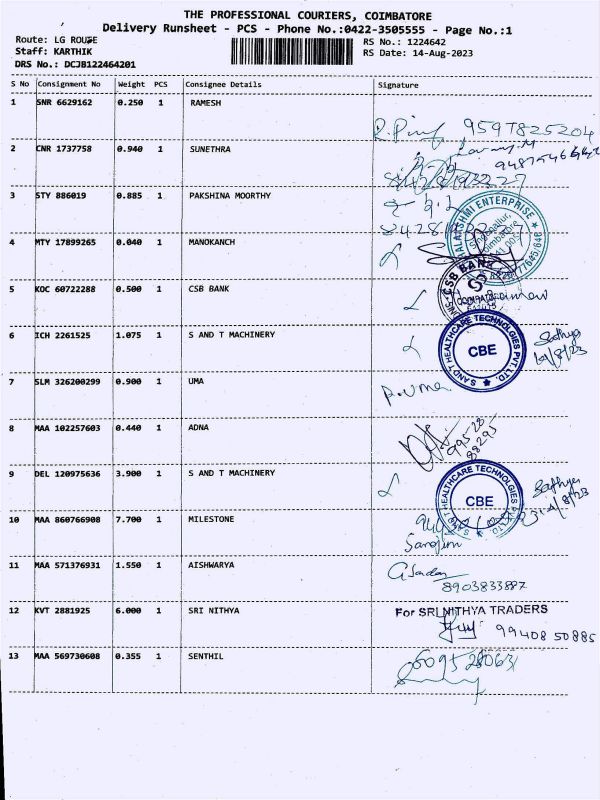 THE PROFESSIONAL COURIERS, COIMBATORE
Delivery Runsheet - PCS - Phone No.:0422-3505555 - Page No.:1
Route: LG ROUTE
RS No.: 1224642
Staff: KARTHIK
RS Date: 14-Aug-2023
DRS No.: DCJB122464201
S No Consignment No Weight PCS Consignee Details Signature
1 SNR 6629162 0.250 1 RAMESH
9597825204
2 CNR 1737758 0.940 1 SUNETHRA
3 STY 886019 0.885 1 PAKSHINA MOORTHY
4 MTY 17899265 0.040 1 MANOKANCH
5 KOC 60722288 0.500 1 CSB BANK
CSB BANK
6 ICH 2261525 1.075 1 S AND T MACHINERY
S AND T HEALTHCARE TECHNOLGIES PVT. LTD.
CBE
Sathya
14/8/23
7 SLM 326200299 0.900 1 UMA
P. Uma
8 MAA 102257603 0.440 1 ADNA
99520
88295
9 DEL 120975636 3.900 1 S AND T MACHINERY
S AND T HEALTHCARE TECHNOLGIES PVT. LTD.
CBE
Sathya
14/8/23
10 MAA 860766908 7.700 1 MILESTONE
Sarojini
11 MAA 571376931 1.550 1 AISHWARYA
8903833887
12 KVT 2881925 6.000 1 SRI NITHYA
For SRI NITHYA TRADERS
99408 50885
13 MAA 569730608 0.355 1 SENTHIL